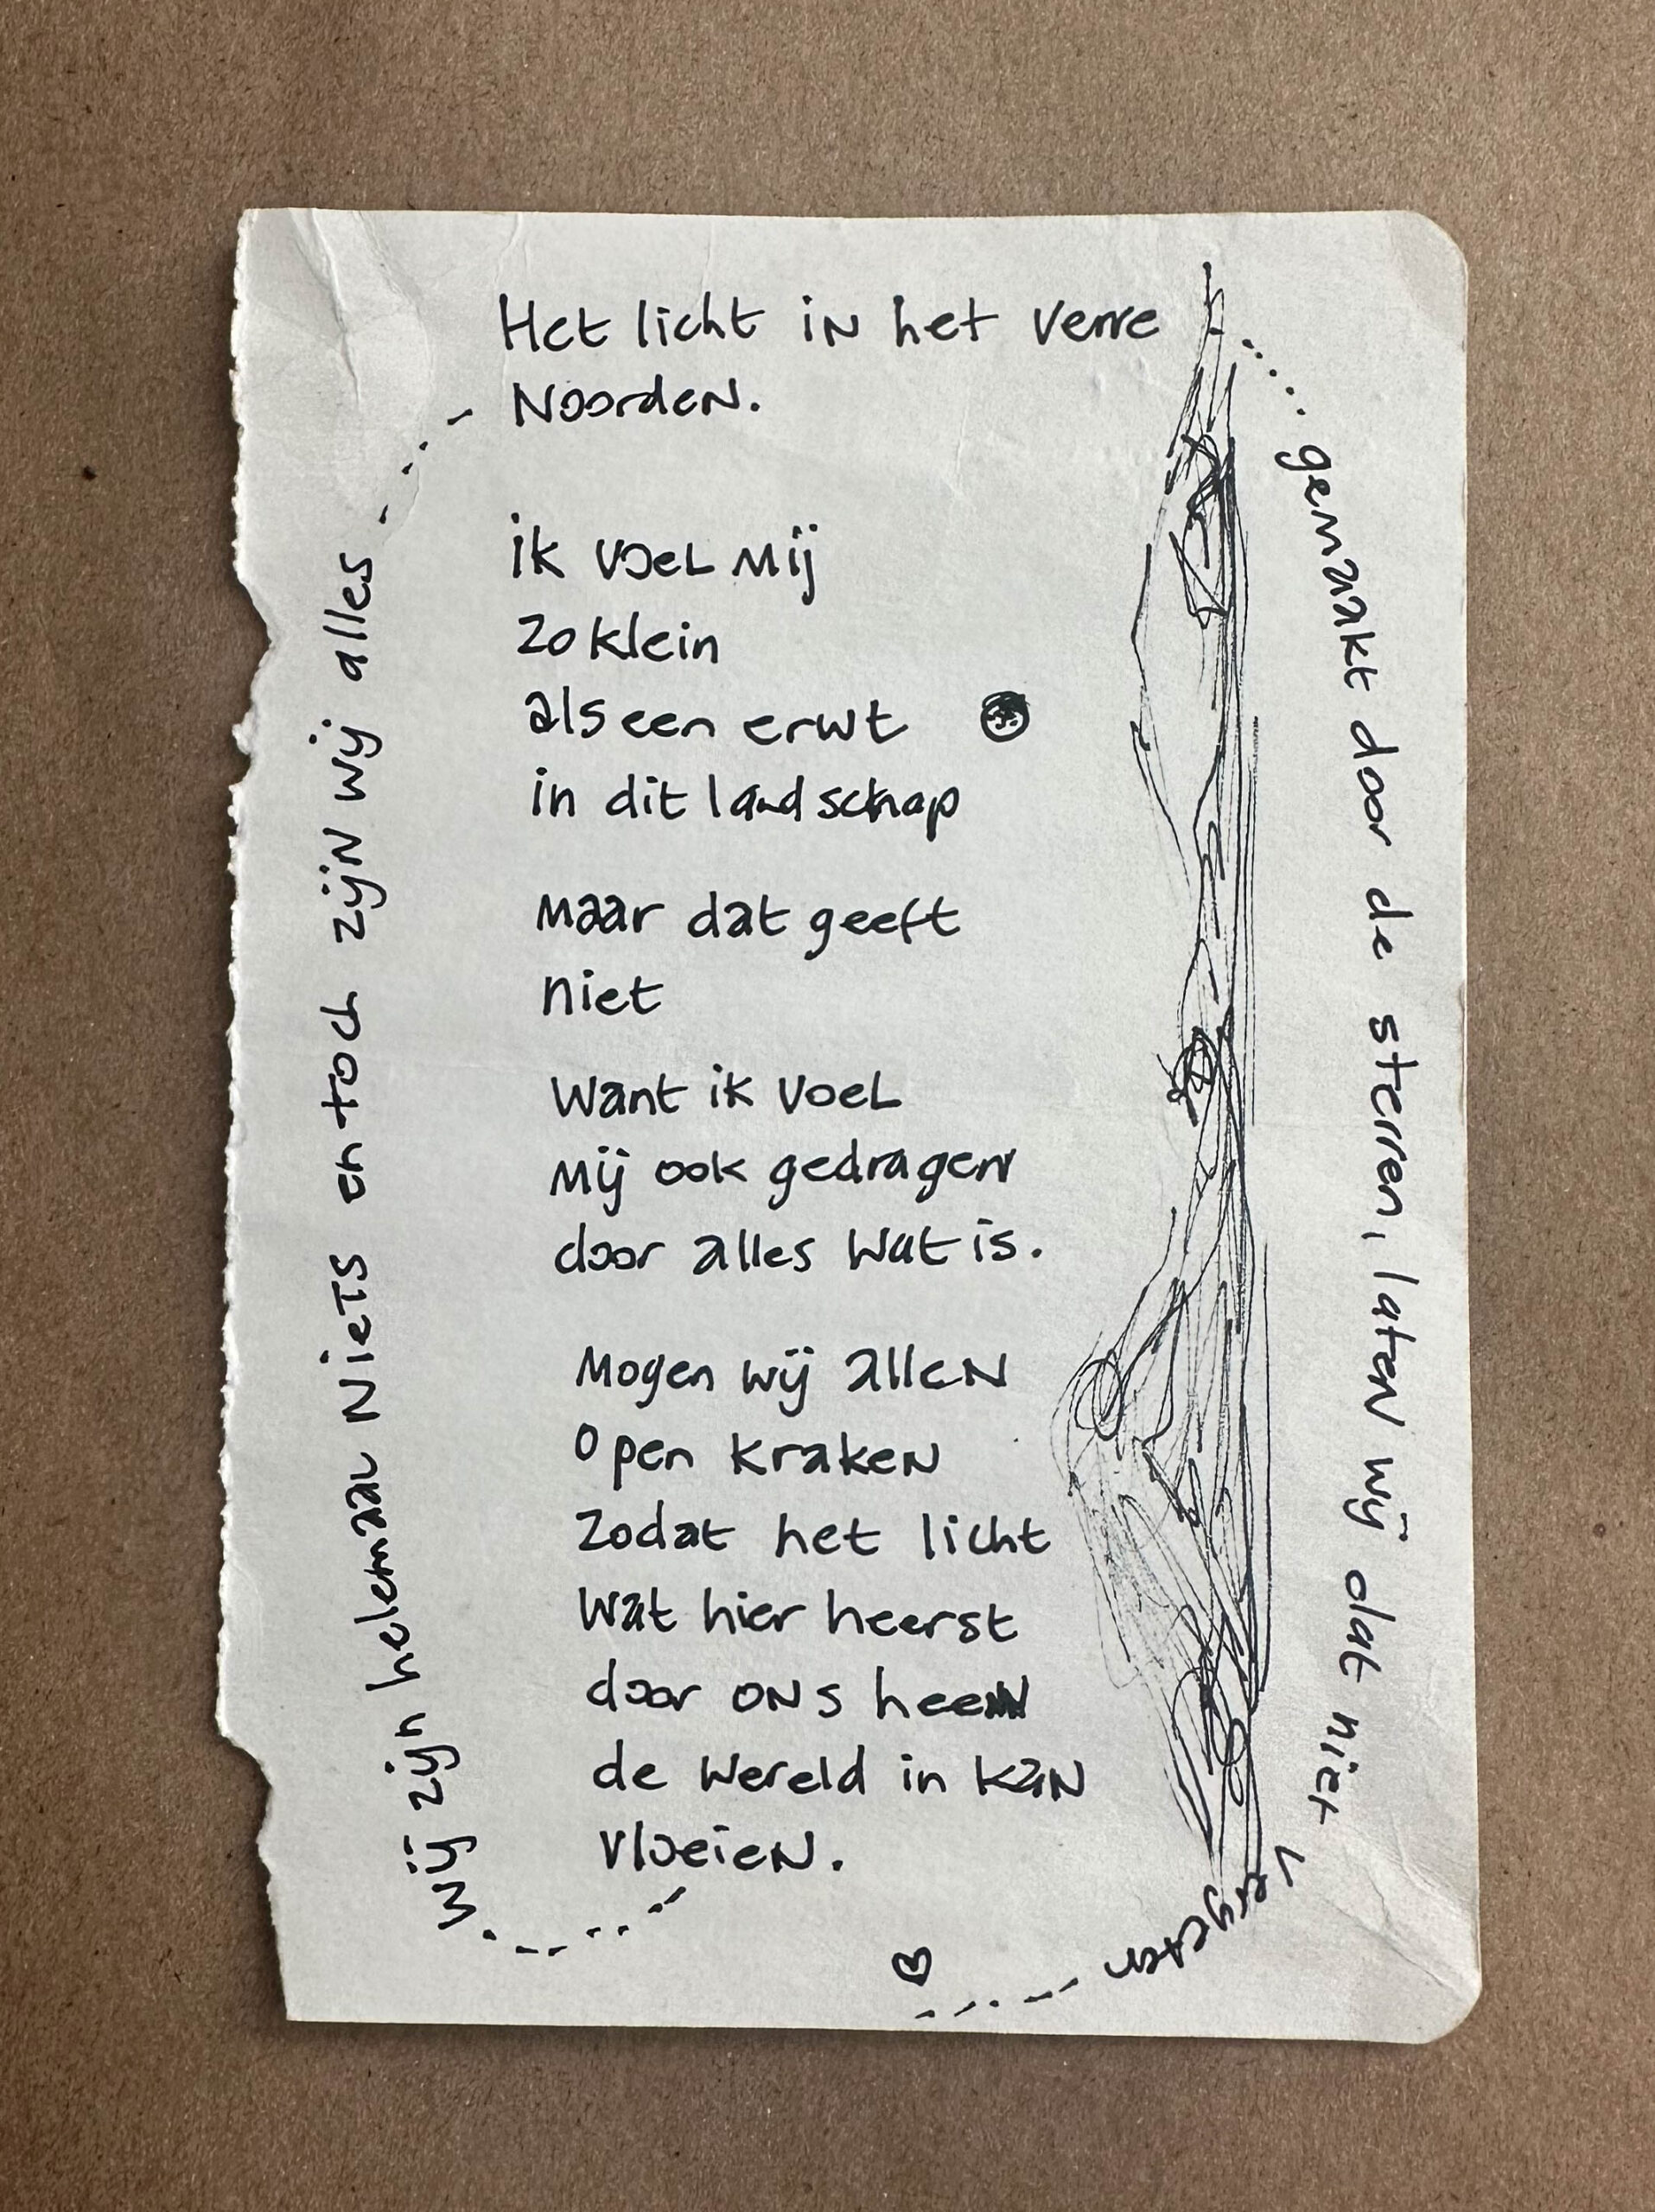 Het licht in het verre
Noorden.
ik voel mij
zo klein
als een erwt
in dit landschap
maar dat geeft
niet
want ik voel
mij ook gedragen
door alles wat is.
Mogen wij allen
open kraken
zodat het licht
wat hier heerst
door ons heen
de wereld in kan
vloeien.
wij zijn helemaal niets en toch zijn wij alles
gemaakt door de sterren, laten wij dat niet vergeten